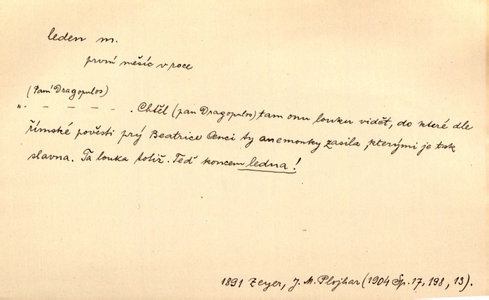 leden m.
první měsíc v roce
(Paní Dragopulos)
„. – – – – – . Chtěl (pan Dragopulos) tam onu louku vidět, do které dle
římské pověsti prý Beatrice Cenci ty anemonky zasila, kterými je tak
slavna. Ta louka totiž. Teď koncem ledna!
1891 Zeyer, J. M. Plojhar (1904 Sp. 17, 198, 13).